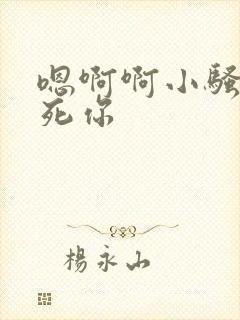 嗯啊啊小骚
死你
杨永山